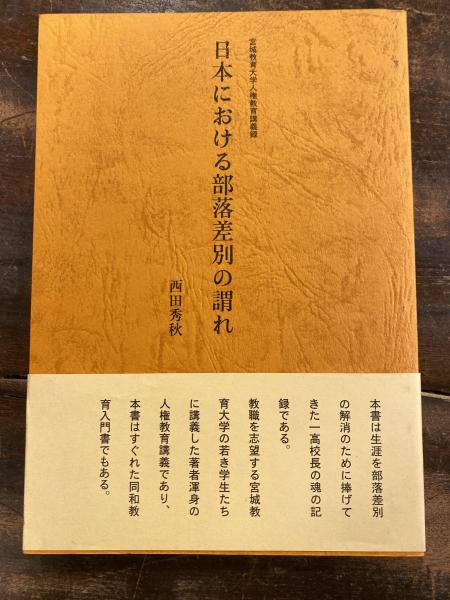 宮城教育大学人権教育講義録
日本における部落差別の謂れ
西田秀秋
本書は生涯を部落差別
の解消のために捧げて
きた一高校長の魂の記
録である。
教職を志望する宮城教
育大学の若き学生たち
に講義した著者渾身の
人権教育講義であり、
本書はすぐれた同和教
育入門書でもある。